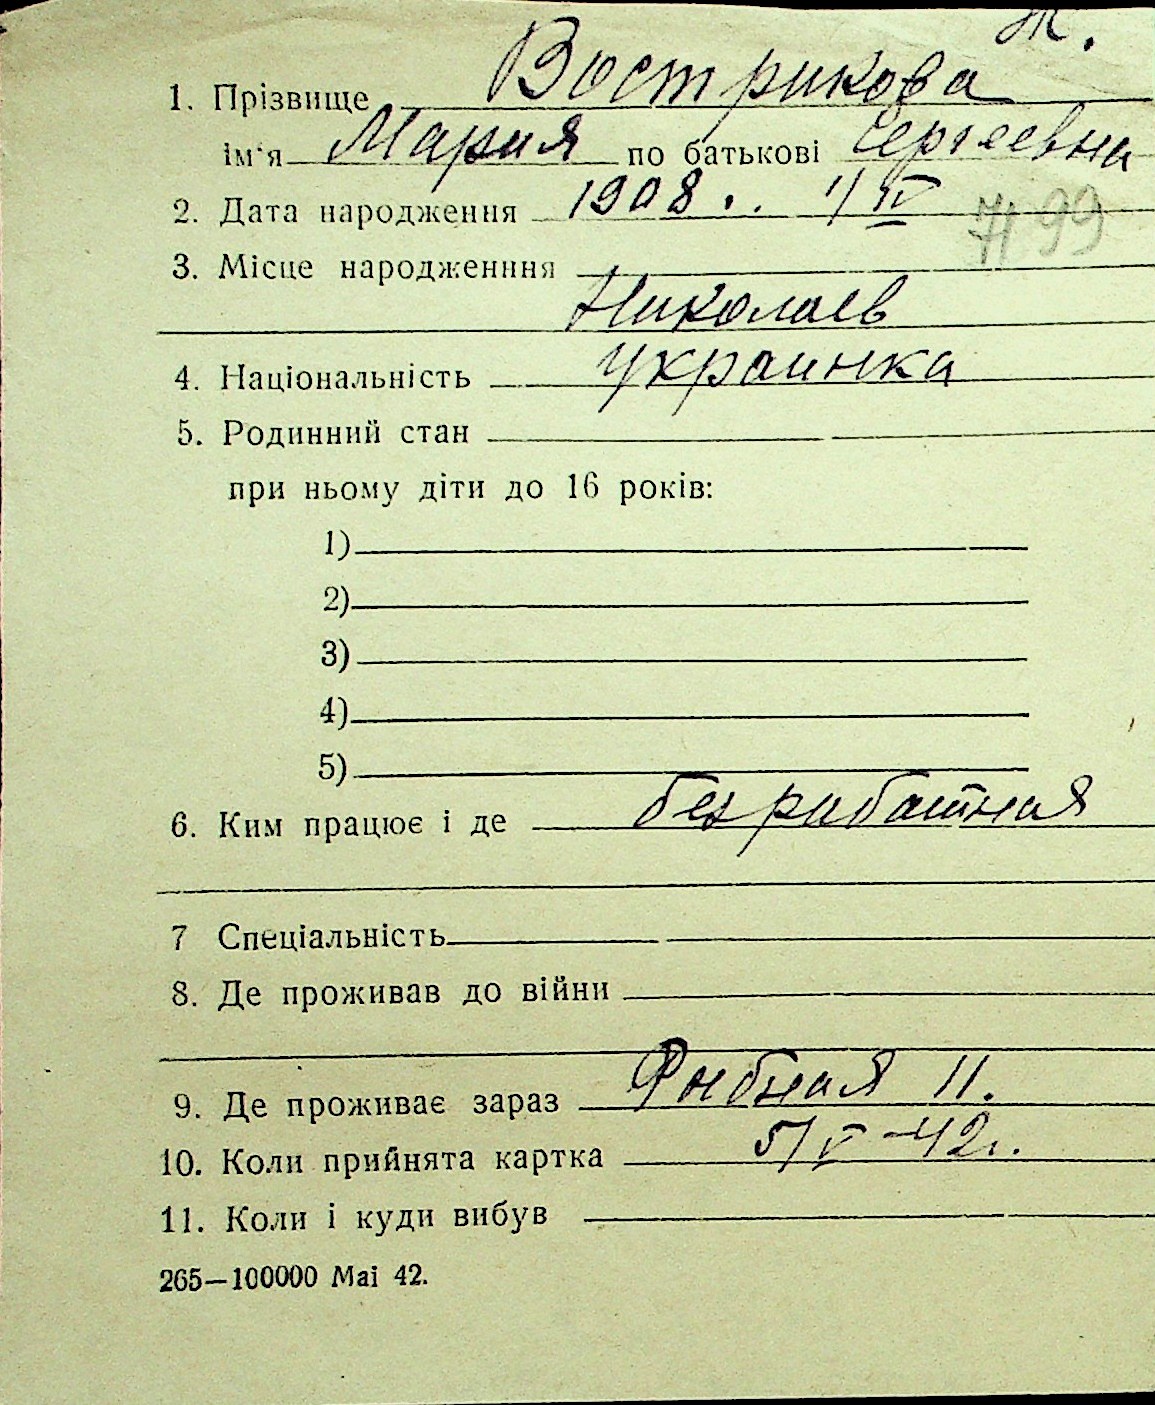 ж.
1. Прізвище Вострикова
ім'я Мария по батькові Сергеевна
2. Дата народження 1908 . . 1/IV
7199
3. Місце народженння
Николаев
4. Національність украинка
5. Родинний стан
при ньому діти до 16 років:
1)
2)
3)
4)
5)
6. Ким працює і де безработная
7 Спеціальність
8. Де проживав до війни
9. Де проживає зараз Рыбная 11.
10. Коли прийнята картка 5/V-42г.
11. Коли і куди вибув
265—100000 Маі 42.